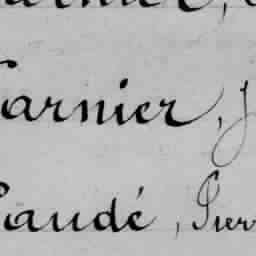 arnier, J
audé, Pier